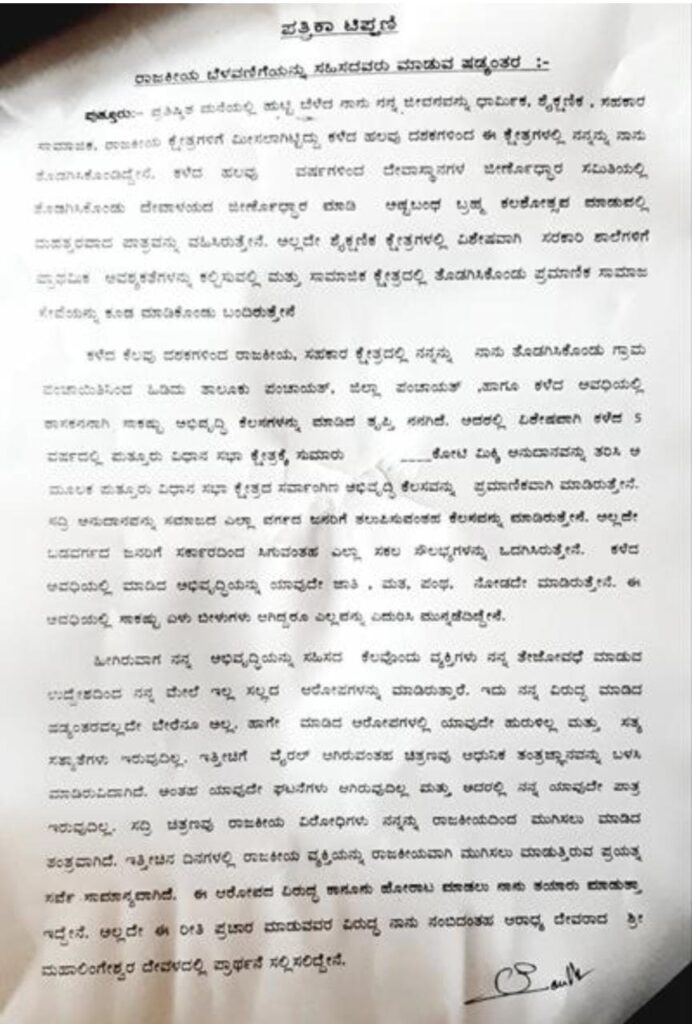 ಪತ್ರಿಕಾ ಟಿಪ್ಪಣಿ
ರಾಜಕೀಯ ಬೆಳವಣಿಗೆಯನ್ನು ಸಹಿಸದವರು ಮಾಡುವ ಷಡ್ಯಂತರ :-
ಪುತ್ತೂರು:- ಪ್ರತಿಷ್ಠಿತ ಮನೆಯಲ್ಲಿ ಹುಟ್ಟಿ ಬೆಳೆದ ನಾನು ನನ್ನ ಜೀವನವನ್ನು ಧಾರ್ಮಿಕ, ಶೈಕ್ಷಣಿಕ , ಸಹಕಾರ
ಸಾಮಾಜಿಕ, ರಾಜಕೀಯ ಕ್ಷೇತ್ರಗಳಿಗೆ ಮೀಸಲಾಗಿಟ್ಟಿದ್ದು ಕಳೆದ ಹಲವು ದಶಕಗಳಿಂದ ಈ ಕ್ಷೇತ್ರಗಳಲ್ಲಿ ನನ್ನನ್ನು ನಾನು
ತೊಡಗಿಸಿಕೊಂಡಿದ್ದೇನೆ. ಕಳೆದ ಹಲವು ವರ್ಷಗಳಿಂದ ದೇವಾಸ್ಥಾನಗಳ ಜೀರ್ಣೋದ್ಧಾರ ಸಮಿತಿಯಲ್ಲಿ
ತೊಡಗಿಸಿಕೊಂಡು ದೇವಾಲಯದ ಜೀರ್ಣೋದ್ಧಾರ ಮಾಡಿ ಅಷ್ಟಬಂಧ ಬ್ರಹ್ಮ ಕಲಶೋತ್ಸವ ಮಾಡುವಲ್ಲಿ
ಮಹತ್ತರವಾದ ಪಾತ್ರವನ್ನು ವಹಿಸಿರುತ್ತೇನೆ. ಅಲ್ಲದೇ ಶೈಕ್ಷಣಿಕ ಕ್ಷೇತ್ರಗಳಲ್ಲಿ ವಿಶೇಷವಾಗಿ ಸರಕಾರಿ ಶಾಲೆಗಳಿಗೆ
ಪ್ರಾಥಮಿಕ ಅವಶ್ಯಕತೆಗಳನ್ನು ಕಲ್ಪಿಸುವಲ್ಲಿ ಮತ್ತು ಸಾಮಾಜಿಕ ಕ್ಷೇತ್ರದಲ್ಲಿ ತೊಡಗಿಸಿಕೊಂಡು ಪ್ರಮಾಣಿಕ ಸಾಮಾಜ
ಸೇವೆಯನ್ನು ಕೂಡ ಮಾಡಿಕೊಂಡು ಬಂದಿರುತ್ತೇನೆ
ಕಳೆದ ಕೆಲವು ದಶಕಗಳಿಂದ ರಾಜಕೀಯ, ಸಹಕಾರ ಕ್ಷೇತ್ರದಲ್ಲಿ ನನ್ನನ್ನು ನಾನು ತೊಡಗಿಸಿಕೊಂಡು ಗ್ರಾಮ
ಪಂಚಾಯಿತಿನಿಂದ ಹಿಡಿದು ತಾಲೂಕು ಪಂಚಾಯತ್, ಜಿಲ್ಲಾ ಪಂಚಾಯತ್ ,ಹಾಗೂ ಕಳೆದ ಅವಧಿಯಲ್ಲಿ
ಶಾಸಕನನಾಗಿ ಸಾಕಷ್ಟು ಅಭಿವೃದ್ಧಿ ಕೆಲಸಗಳನ್ನು ಮಾಡಿದ ತೃಪ್ತಿ ನನಗಿದೆ. ಅದರಲ್ಲಿ ವಿಶೇಷವಾಗಿ ಕಳೆದ 5
ವರ್ಷದಲ್ಲಿ ಪುತ್ತೂರು ವಿಧಾನ ಸಭಾ ಕ್ಷೇತ್ರಕ್ಕೆ ಸುಮಾರು ____ಕೋಟಿ ಮಿಕ್ಕಿ ಅನುದಾನವನ್ನು ತರಿಸಿ ಆ
ಮೂಲಕ ಪುತ್ತೂರು ವಿಧಾನ ಸಭಾ ಕ್ಷೇತ್ರದ ಸರ್ವಾಂಗಿಣ ಅಭಿವೃದ್ಧಿ ಕೆಲಸವನ್ನು ಪ್ರಮಾಣಿಕವಾಗಿ ಮಾಡಿರುತ್ತೇನೆ.
ಸದ್ರಿ ಅನುದಾನವನ್ನು ಸಮಾಜದ ಎಲ್ಲಾ ವರ್ಗದ ಜನರಿಗೆ ತಲುಪಿಸುವಂತಹ ಕೆಲಸವನ್ನು ಮಾಡಿರುತ್ತೇನೆ. ಅಲ್ಲದೇ
ಬಡವರ್ಗದ ಜನರಿಗೆ ಸರ್ಕಾರದಿಂದ ಸಿಗುವಂತಹ ಎಲ್ಲಾ ಸಕಲ ಸೌಲಭ್ಯಗಳನ್ನು ಒದಗಿಸಿರುತ್ತೇನೆ. ಕಳೆದ
ಅವಧಿಯಲ್ಲಿ ಮಾಡಿದ ಅಭಿವೃದ್ಧಿಯನ್ನು ಯಾವುದೇ ಜಾತಿ , ಮತ, ಪಂಥ, ನೋಡದೇ ಮಾಡಿರುತ್ತೇನೆ. ಈ
ಅವಧಿಯಲ್ಲಿ ಸಾಕಷ್ಟು ಏಳು ಬೀಳುಗಳು ಆಗಿದ್ದರೂ ಎಲ್ಲವನ್ನು ಎದುರಿಸಿ ಮುನ್ನಡೆದಿದ್ದೇನೆ.
ಹೀಗಿರುವಾಗ ನನ್ನ ಅಭಿವೃದ್ಧಿಯನ್ನು ಸಹಿಸದ ಕೆಲವೊಂದು ವ್ಯಕ್ತಿಗಳು ನನ್ನ ತೇಜೋವಧೆ ಮಾಡುವ
ಉದ್ದೇಶದಿಂದ ನನ್ನ ಮೇಲೆ ಇಲ್ಲ ಸಲ್ಲದ ಆರೋಪಗಳನ್ನು ಮಾಡಿರುತ್ತಾರೆ. ಇದು ನನ್ನ ವಿರುದ್ಧ ಮಾಡಿದ
ಷಡ್ಯಂತರವಲ್ಲದೇ ಬೇರೆನೂ ಅಲ್ಲ. ಹಾಗೇ ಮಾಡಿದ ಆರೋಪಗಳಲ್ಲಿ ಯಾವುದೇ ಹುರುಳಿಲ್ಲ ಮತ್ತು ಸತ್ಯ
ಸತ್ಯಾತೆಗಳು ಇರುವುದಿಲ್ಲ. ಇತ್ತೀಚಿಗೆ ವೈರಲ್ ಆಗಿರುವಂತಹ ಚಿತ್ರಣವು ಆಧುನಿಕ ತಂತ್ರಜ್ಞಾನವನ್ನು ಬಳಸಿ
ಮಾಡಿರುವಿದಾಗಿದೆ. ಅಂತಹ ಯಾವುದೇ ಘಟನೆಗಳು ಆಗಿರುವುದಿಲ್ಲ ಮತ್ತು ಅದರಲ್ಲಿ ನನ್ನ ಯಾವುದೇ ಪಾತ್ರ
ಇರುವುದಿಲ್ಲ. ಸದ್ರಿ ಚಿತ್ರಣವು ರಾಜಕೀಯ ವಿರೋಧಿಗಳು ನನ್ನನ್ನು ರಾಜಕೀಯದಿಂದ ಮುಗಿಸಲು ಮಾಡಿದ
ತಂತ್ರವಾಗಿದೆ. ಇತ್ತೀಚಿನ ದಿನಗಳಲ್ಲಿ ರಾಜಕೀಯ ವ್ಯಕ್ತಿಯನ್ನು ರಾಜಕೀಯವಾಗಿ ಮುಗಿಸಲು ಮಾಡುತ್ತಿರುವ ಪ್ರಯತ್ನ
ಸರ್ವೆ ಸಾಮಾನ್ಯವಾಗಿದೆ. ಈ ಆರೋಪದ ವಿರುದ್ಧ ಕಾನೂನು ಹೋರಾಟ ಮಾಡಲು ನಾನು ತಯಾರು ಮಾಡುತ್ತಾ
ಇದ್ದೇನೆ. ಅಲ್ಲದೇ ಈ ರೀತಿ ಪ್ರಚಾರ ಮಾಡುವವರ ವಿರುದ್ಧ ನಾನು ನಂಬಿದಂತಹ ಆರಾಧ್ಯ ದೇವರಾದ ಶ್ರೀ
ಮಹಾಲಿಂಗೇಶ್ವರ ದೇವಳದಲ್ಲಿ ಪ್ರಾರ್ಥನೆ ಸಲ್ಲಿಸಲಿದ್ದೇನೆ.